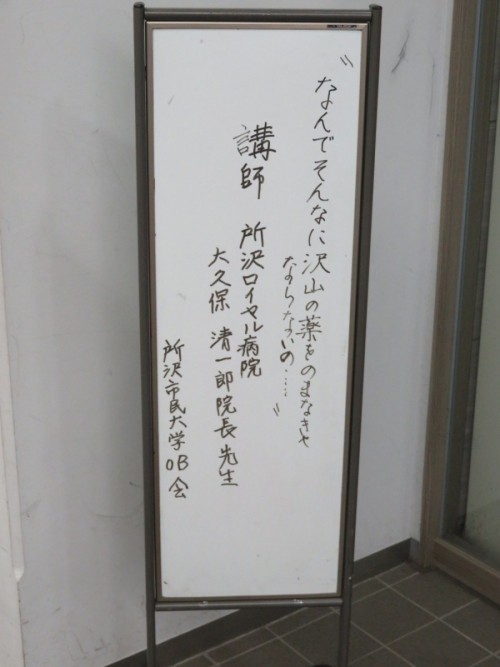 〝なんでそんなに沢山の薬をのまなきゃ
ならないの……〟
講師 所沢ロイヤル病院
大久保 清一郎院長先生
所沢市民大学OB会